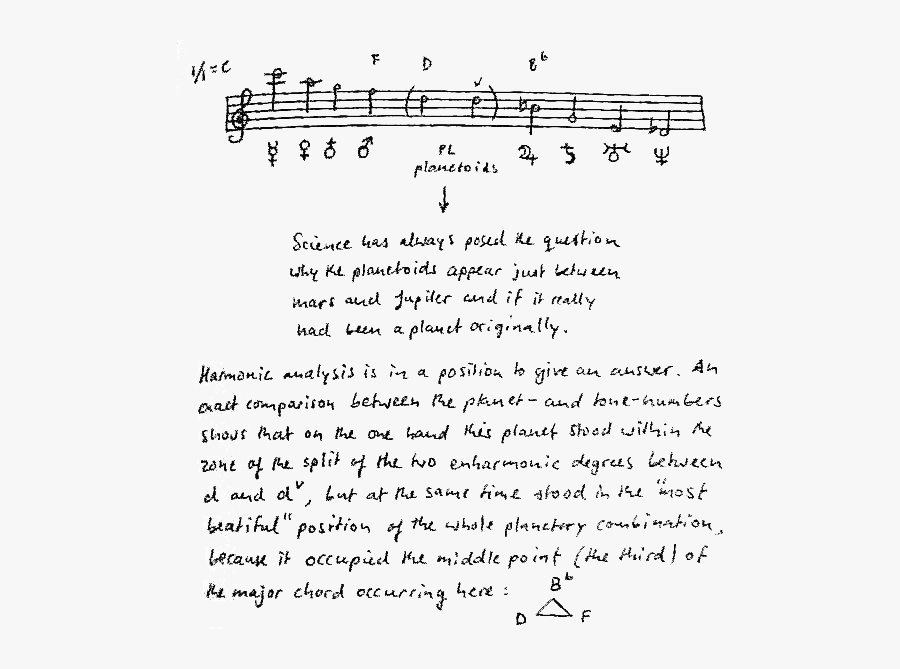 1/1 = c F D B♭
( ✓ )
☿ ♀ ♁ ♂ PL ♃ ♄ ♅ ♆
planetoids
↓
Science has always posed the question
why the planetoids appear just between
mars and Jupiter and if it really
had been a planet originally.
Harmonic analysis is in a position to give an answer. An
exact comparison between the planet- and tone-numbers
shows that on the one hand this planet stood within the
zone of the split of the two enharmonic degrees between
d and dᵛ, but at the same time stood in the "most
beatiful" position of the whole planetary combination,
because it occupied the middle point (the third) of
the major chord occurring here:
B♭
D F